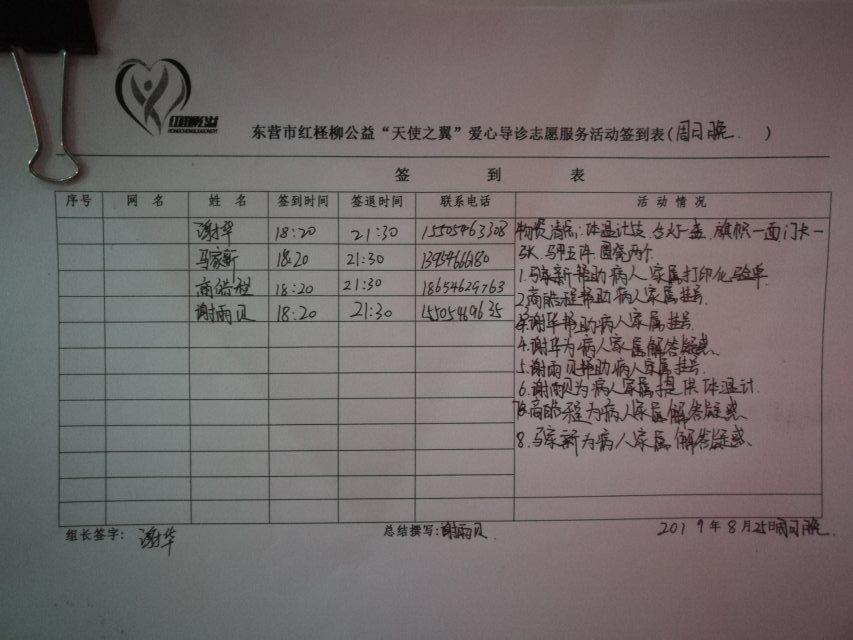 红柽柳公益
东营市红柽柳公益“天使之翼”爱心导诊志愿服务活动签到表(周日晚 )
签 到 表
序号 网 名 姓 名 签到时间 签退时间 联系电话 活 动 情 况
谢华 18:20 21:30 15505463308
马家新 18:20 21:30
商皓程 18:20 21:30 18654624763
谢雨贝 18:20 21:30 15505469635
物资清点:体温计 旗帜一面 门卡一
张 马甲 两个
1.马家新帮助病人家属打印化验单
2.商皓程帮助病人家属挂号
3.谢华帮助病人家属挂号
4.谢华为病人家属解答疑惑
5.谢雨贝帮助病人家属挂号
6.谢雨贝为病人家属提供体温计
7.商皓程为病人家属解答疑惑
8.马家新为病人家属解答疑惑
组长签字: 谢华 总结撰写:谢雨贝 2019年8月25日周日晚